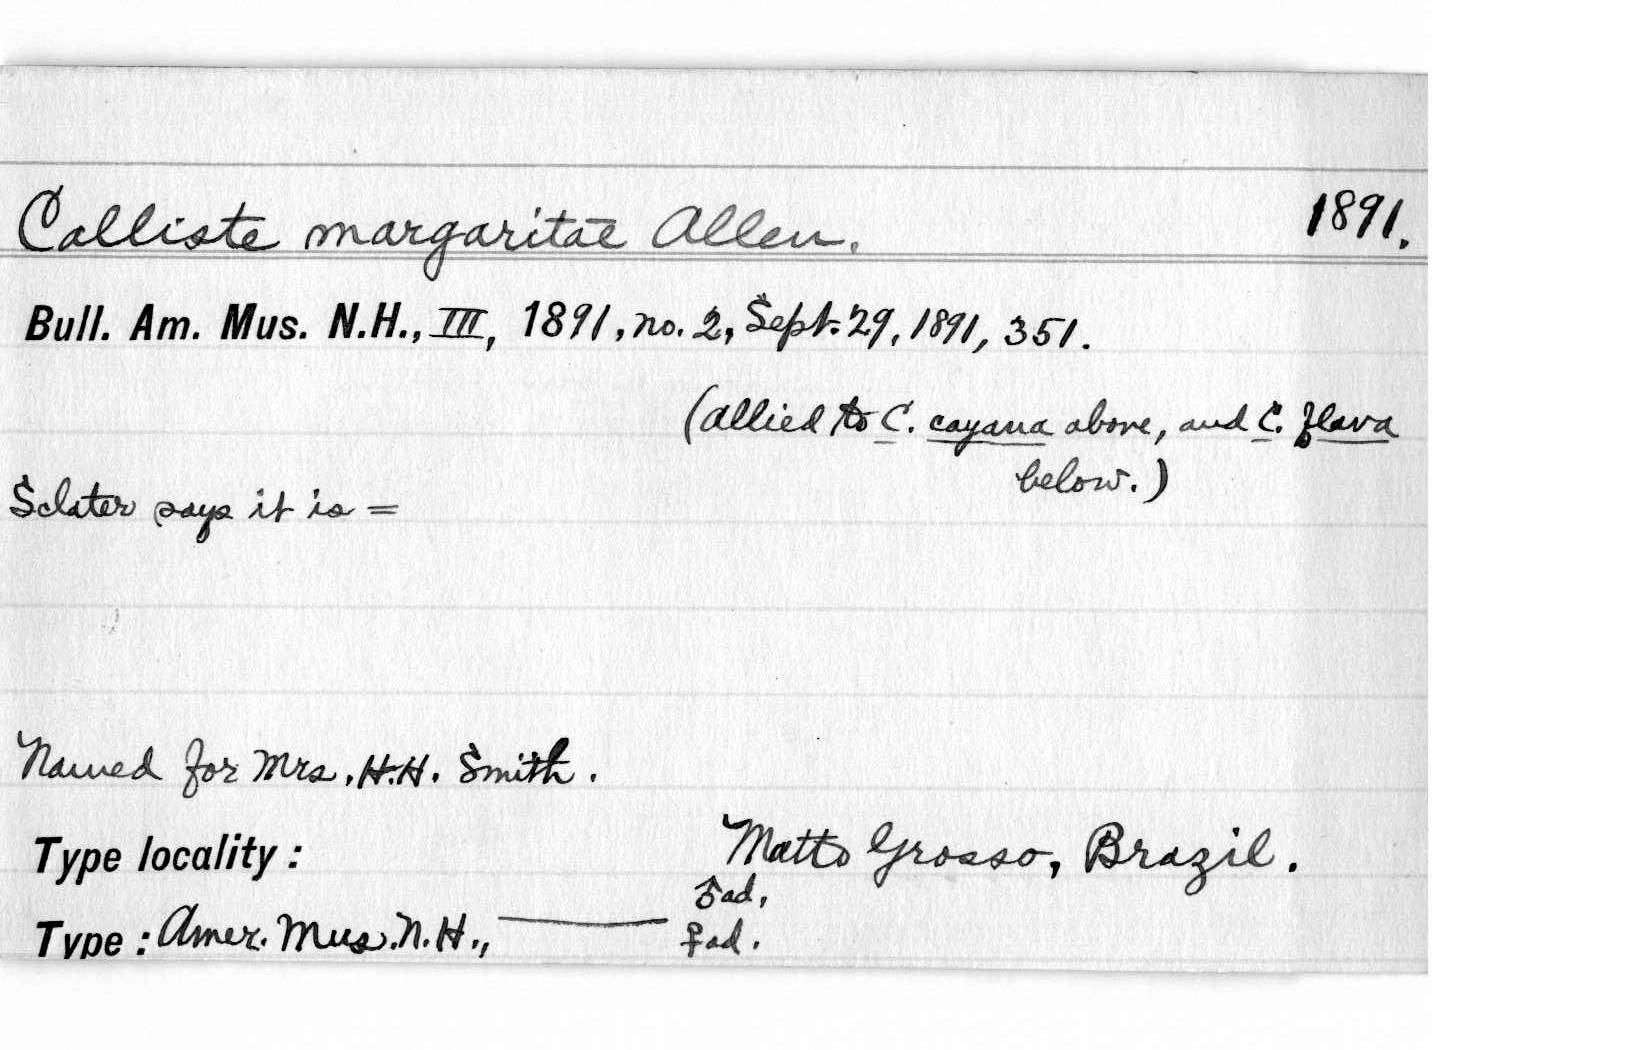 Calliste margaritae Allen. 1891.
Bull. Am. Mus. N.H., III, 1891, no. 2, Sept. 29, 1891, 351.
(Allied to C. cayana above, and C. flava
below.)
Sclater says it is =
Named for Mrs. H.H. Smith.
Type locality: Matto Grosso, Brazil.
♂ad,
Type: Amer. Mus. N.H., —— ♀ad.